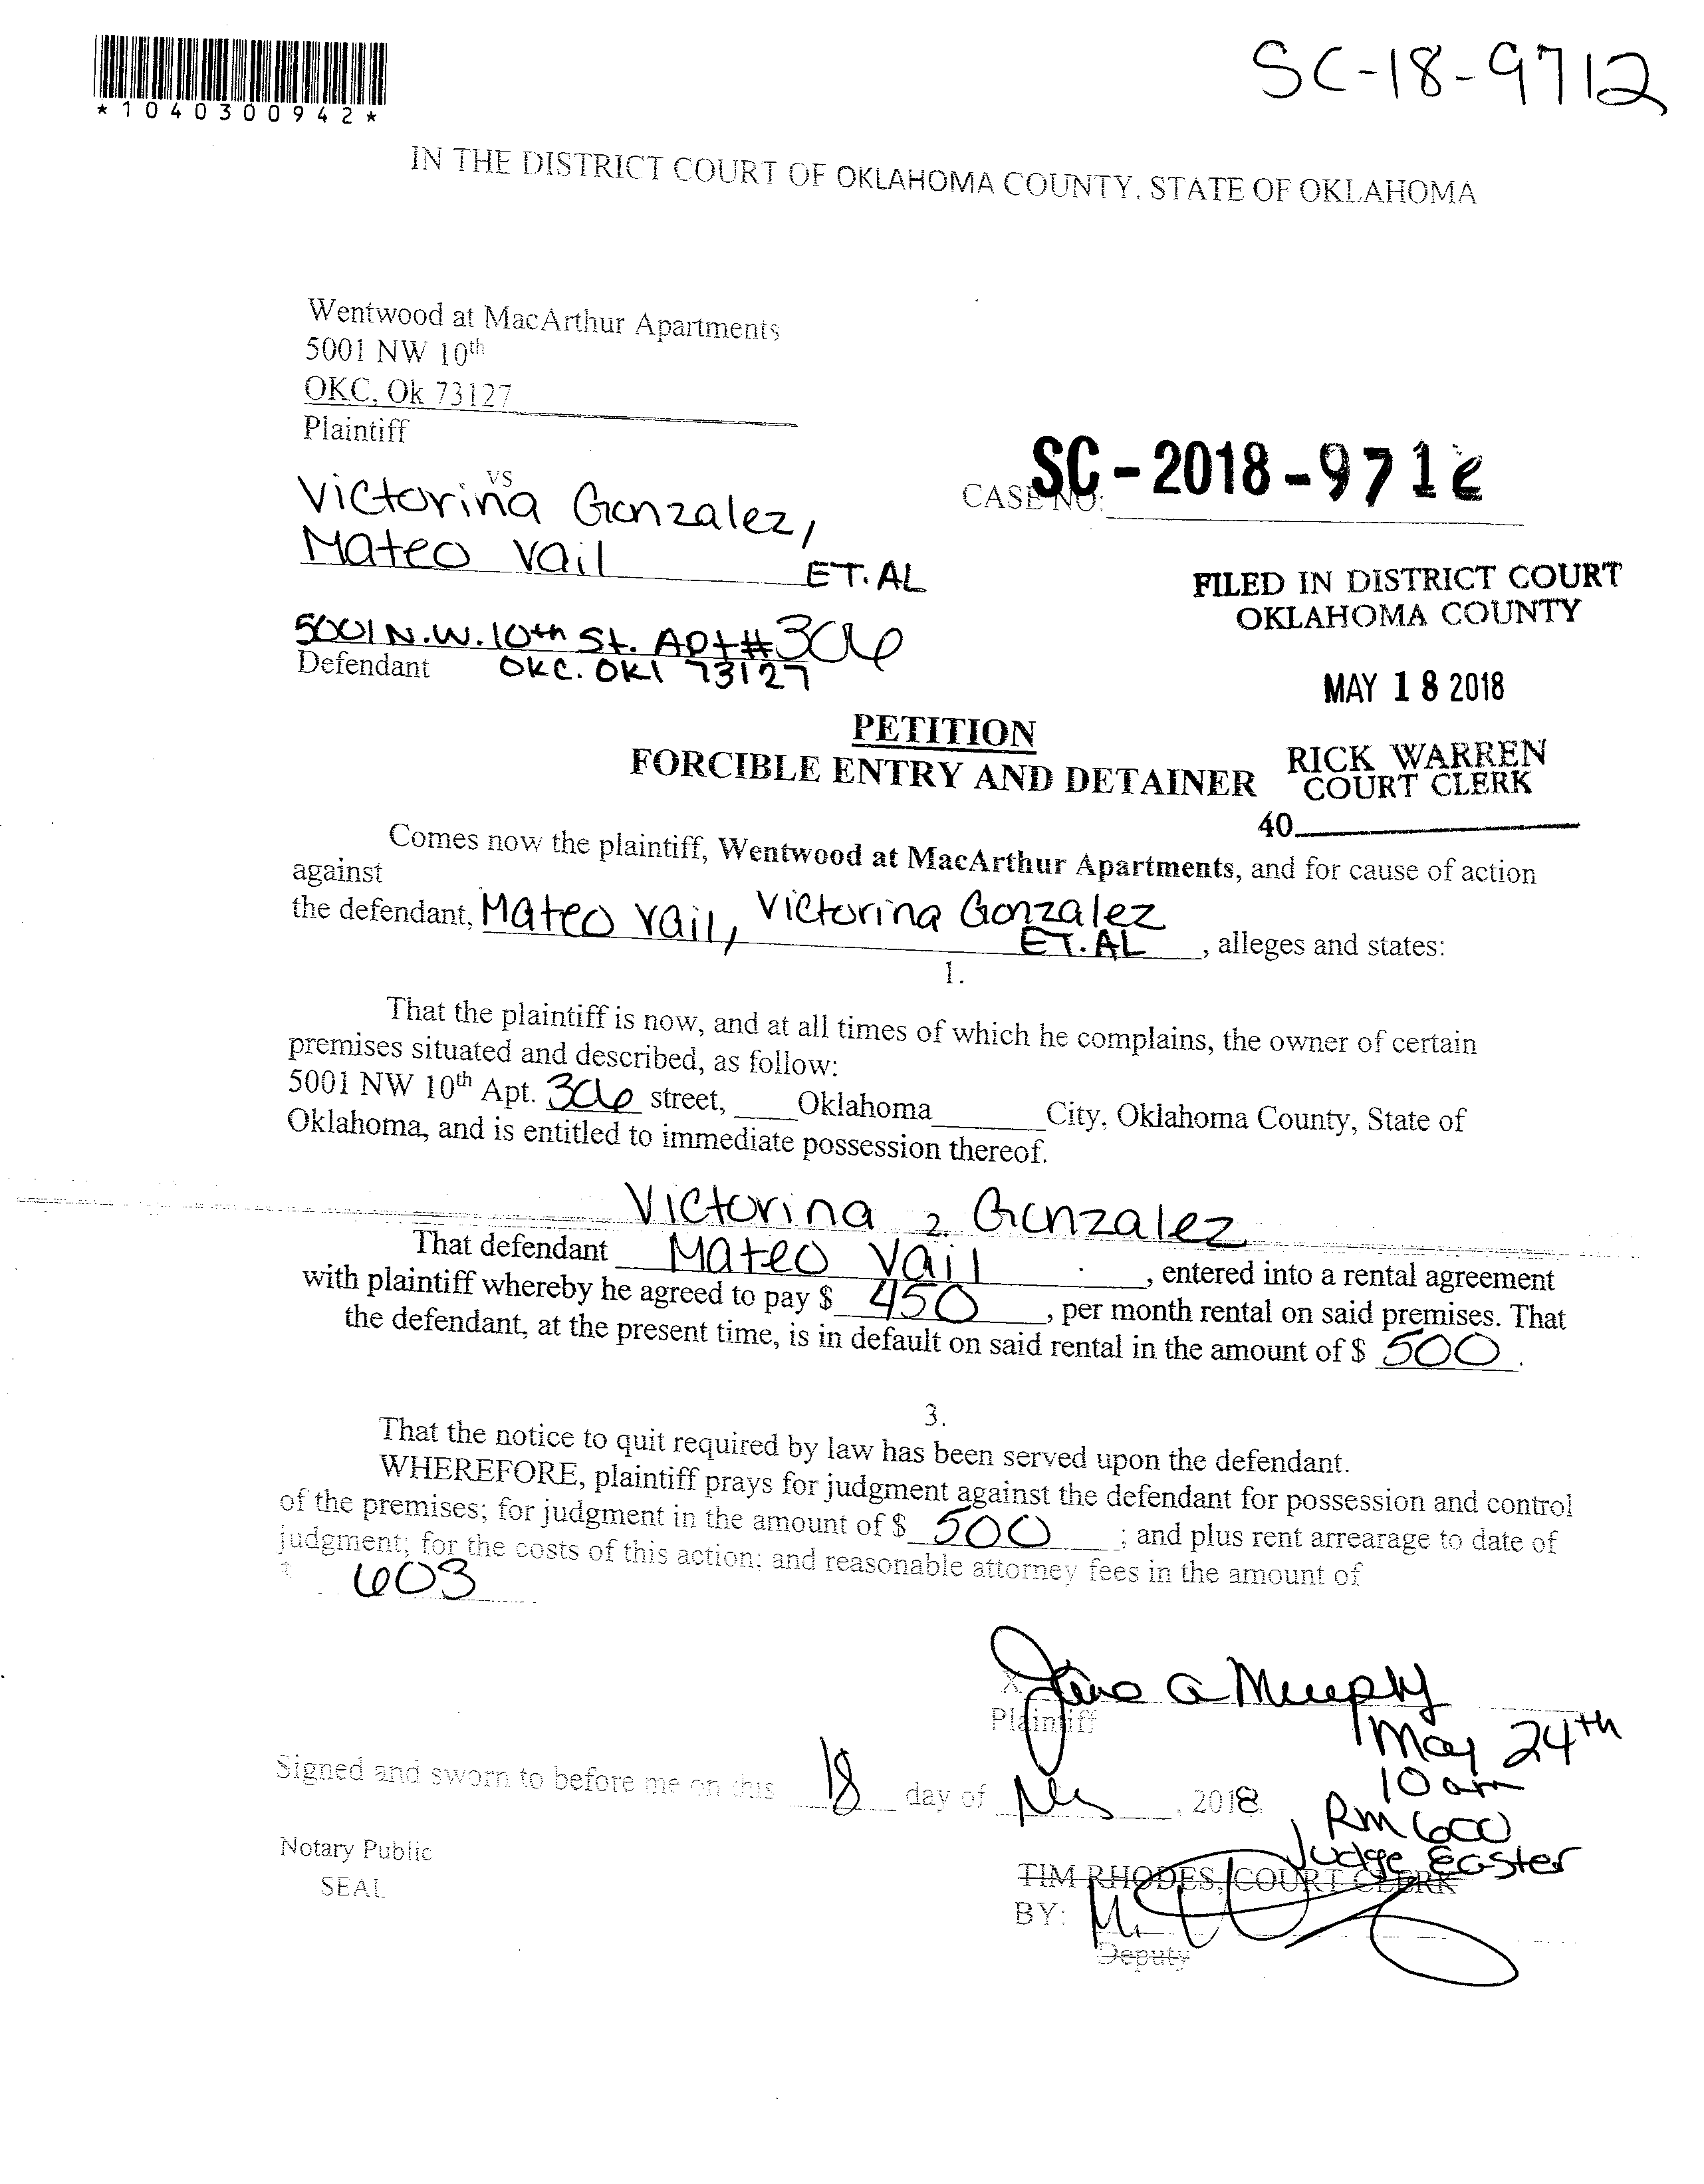 *1040300942*
SC-18-9712
IN THE DISTRICT COURT OF OKLAHOMA COUNTY, STATE OF OKLAHOMA
Wentwood at MacArthur Apartments
5001 NW 10th
OKC, Ok 73127
Plaintiff
vs
Victorina Gonzalez,
Mateo Vail
ET.AL
5001 N.W. 10th St. Apt# 306
Defendant OKC. OKl 73127
CASE NO: SC-2018-9712
FILED IN DISTRICT COURT
OKLAHOMA COUNTY
MAY 18 2018
RICK WARREN
COURT CLERK
40
PETITION
FORCIBLE ENTRY AND DETAINER
Comes now the plaintiff, Wentwood at MacArthur Apartments, and for cause of action
against
the defendant, Mateo Vail, Victorina Gonzalez
ET.AL, alleges and states:
1.
That the plaintiff is now, and at all times of which he complains, the owner of certain
premises situated and described, as follow:
5001 NW 10th Apt. 306 street, Oklahoma City, Oklahoma County, State of
Oklahoma, and is entitled to immediate possession thereof.
Victorina Gonzalez
2.
That defendant Mateo Vail, entered into a rental agreement
with plaintiff whereby he agreed to pay $ 450, per month rental on said premises. That
the defendant, at the present time, is in default on said rental in the amount of $ 500.
3.
That the notice to quit required by law has been served upon the defendant.
WHEREFORE, plaintiff prays for judgment against the defendant for possession and control
of the premises; for judgment in the amount of $ 500; and plus rent arrearage to date of
judgment; for the costs of this action; and reasonable attorney fees in the amount of
$ 603
X Jane A Murphy
Plaintiff
May 24th
10 am
Rm 600
Judge Easter
Signed and sworn to before me on this 18 day of May, 2018.
Notary Public
SEAL
TIM RHODES, COURT CLERK
BY:
Deputy